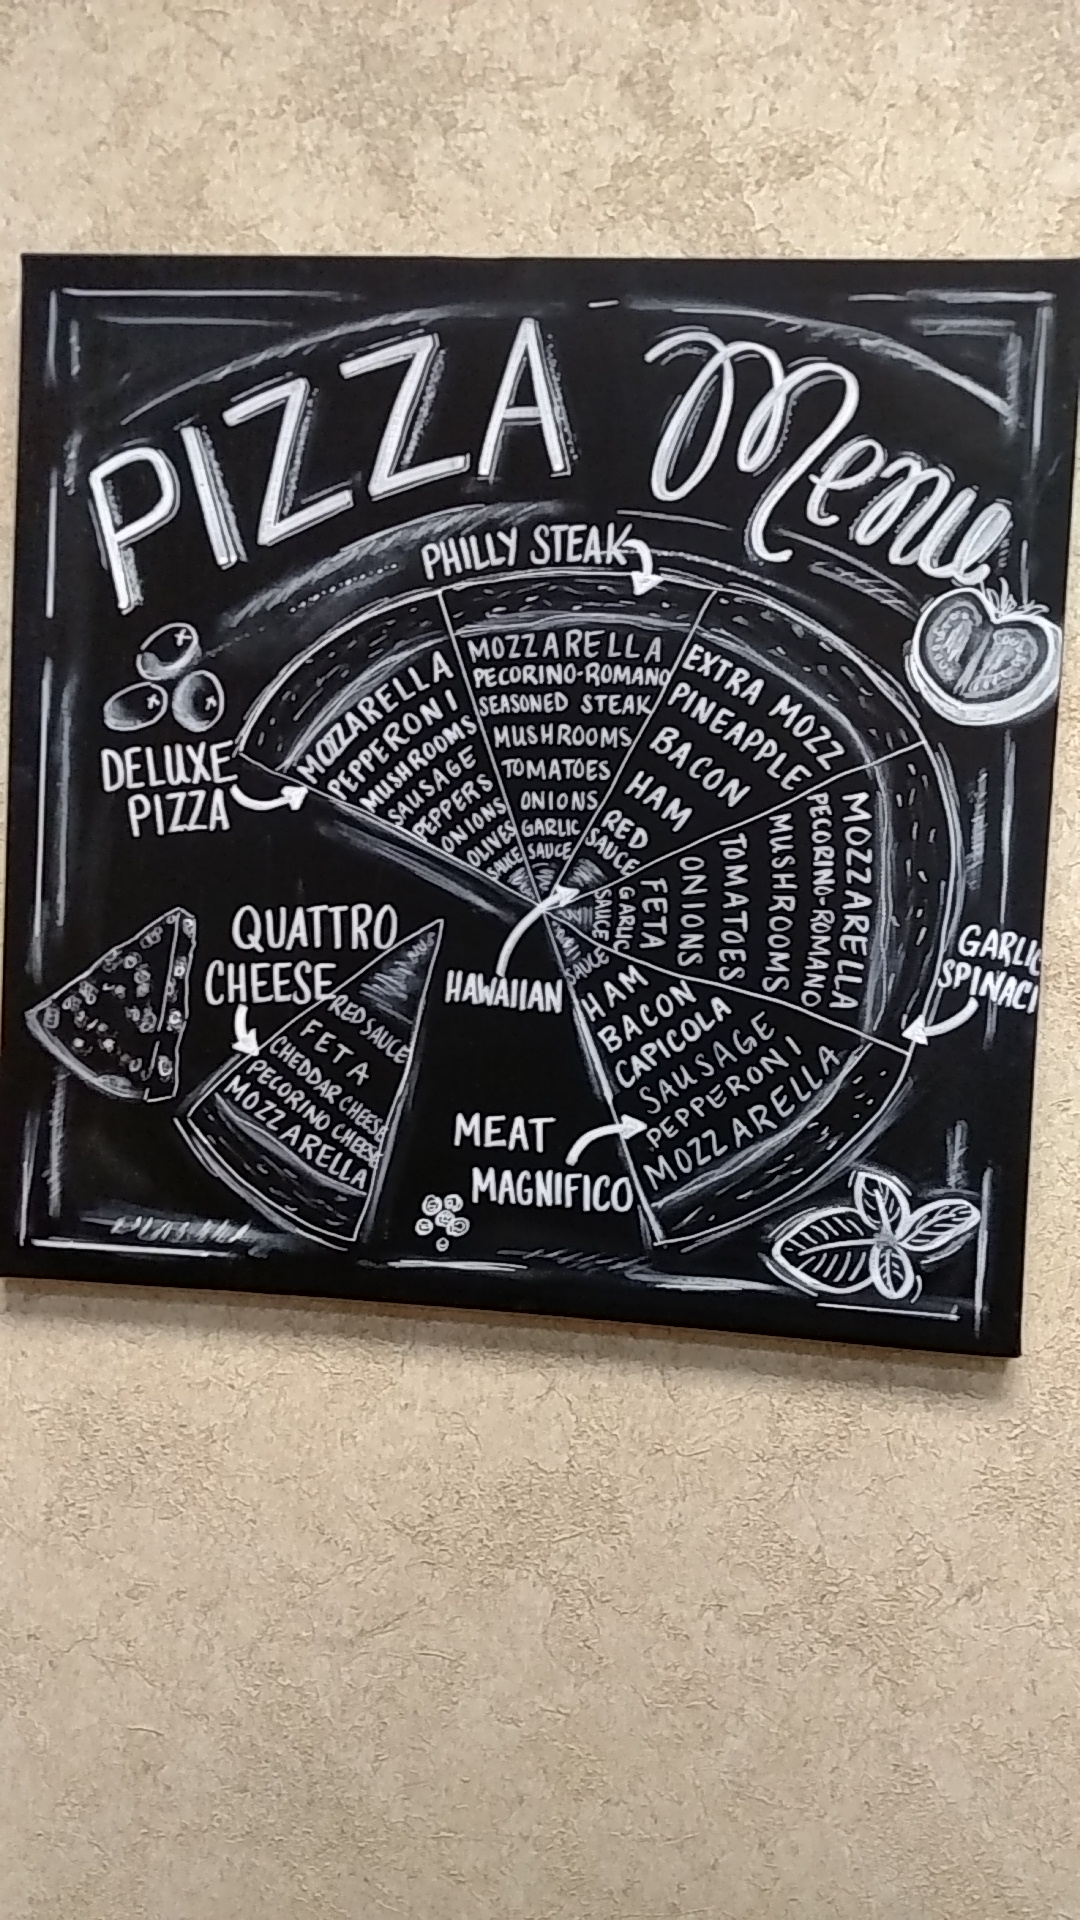 PIZZA Menu
PHILLY STEAK
MOZZARELLA
PECORINO-ROMANO
SEASONED STEAK
MUSHROOMS
TOMATOES
ONIONS
GARLIC
SAUCE
DELUXE
PIZZA
MOZZARELLA
PEPPERONI
MUSHROOMS
SAUSAGE
PEPPERS
ONIONS
OLIVES
SAUCE
EXTRA MOZZ
PINEAPPLE
BACON
HAM
RED
SAUCE
HAWAIIAN
GARLIC
SPINACH
MOZZARELLA
PECORINO-ROMANO
MUSHROOMS
TOMATOES
ONIONS
FETA
GARLIC
SAUCE
QUATTRO
CHEESE
RED SAUCE
FETA
CHEDDAR CHEESE
PECORINO CHEESE
MOZZARELLA
MEAT
MAGNIFICO
SAUCE
HAM
BACON
CAPICOLA
SAUSAGE
PEPPERONI
MOZZARELLA